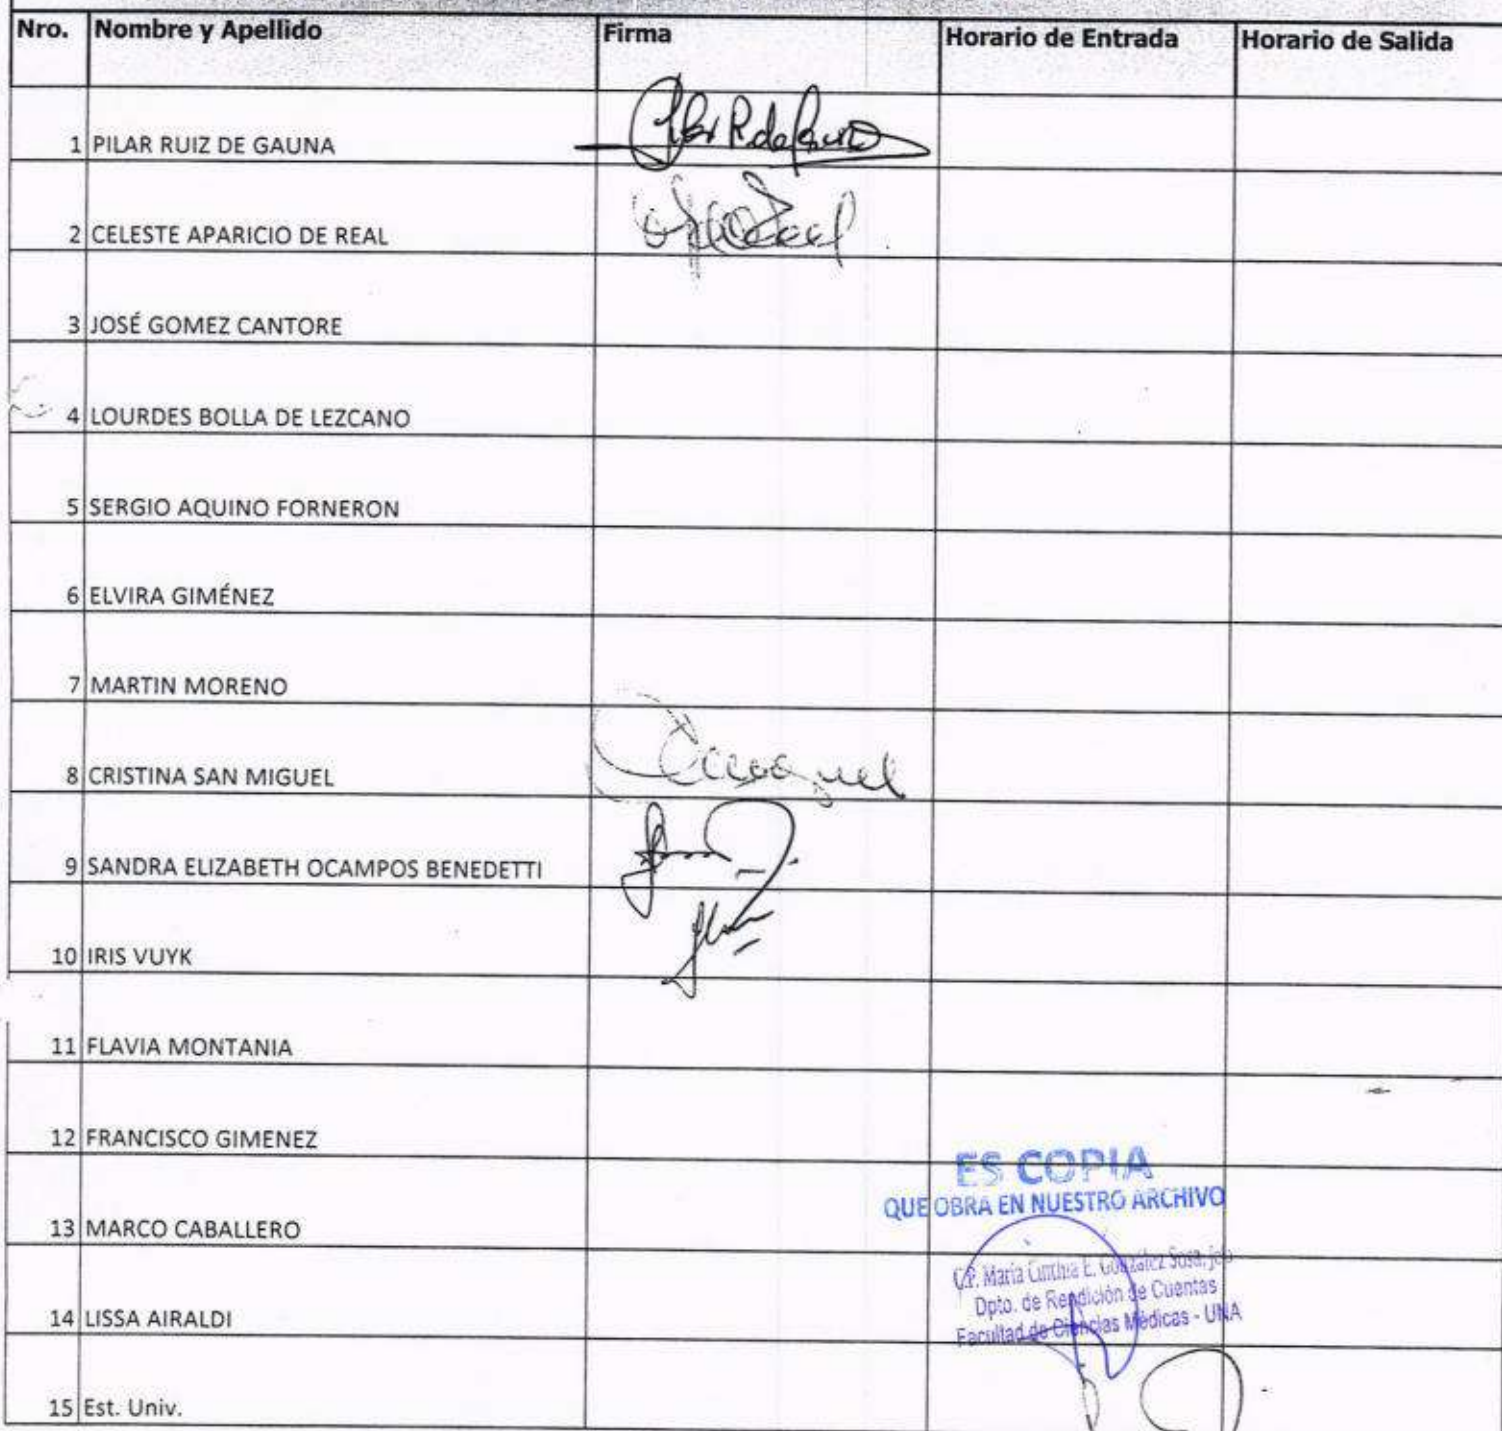 Nro. Nombre y Apellido Firma Horario de Entrada Horario de Salida
1 PILAR RUIZ DE GAUNA
2 CELESTE APARICIO DE REAL
3 JOSÉ GOMEZ CANTORE
4 LOURDES BOLLA DE LEZCANO
5 SERGIO AQUINO FORNERON
6 ELVIRA GIMÉNEZ
7 MARTIN MORENO
8 CRISTINA SAN MIGUEL
9 SANDRA ELIZABETH OCAMPOS BENEDETTI
10 IRIS VUYK
11 FLAVIA MONTANIA
12 FRANCISCO GIMENEZ
ES COPIA
QUE OBRA EN NUESTRO ARCHIVO
13 MARCO CABALLERO
C.P. María Cinthia E. González Sosa,
Dpto. de Rendición de Cuentas
14 LISSA AIRALDI
Facultad de Ciencias Médicas - UNA
15 Est. Univ.